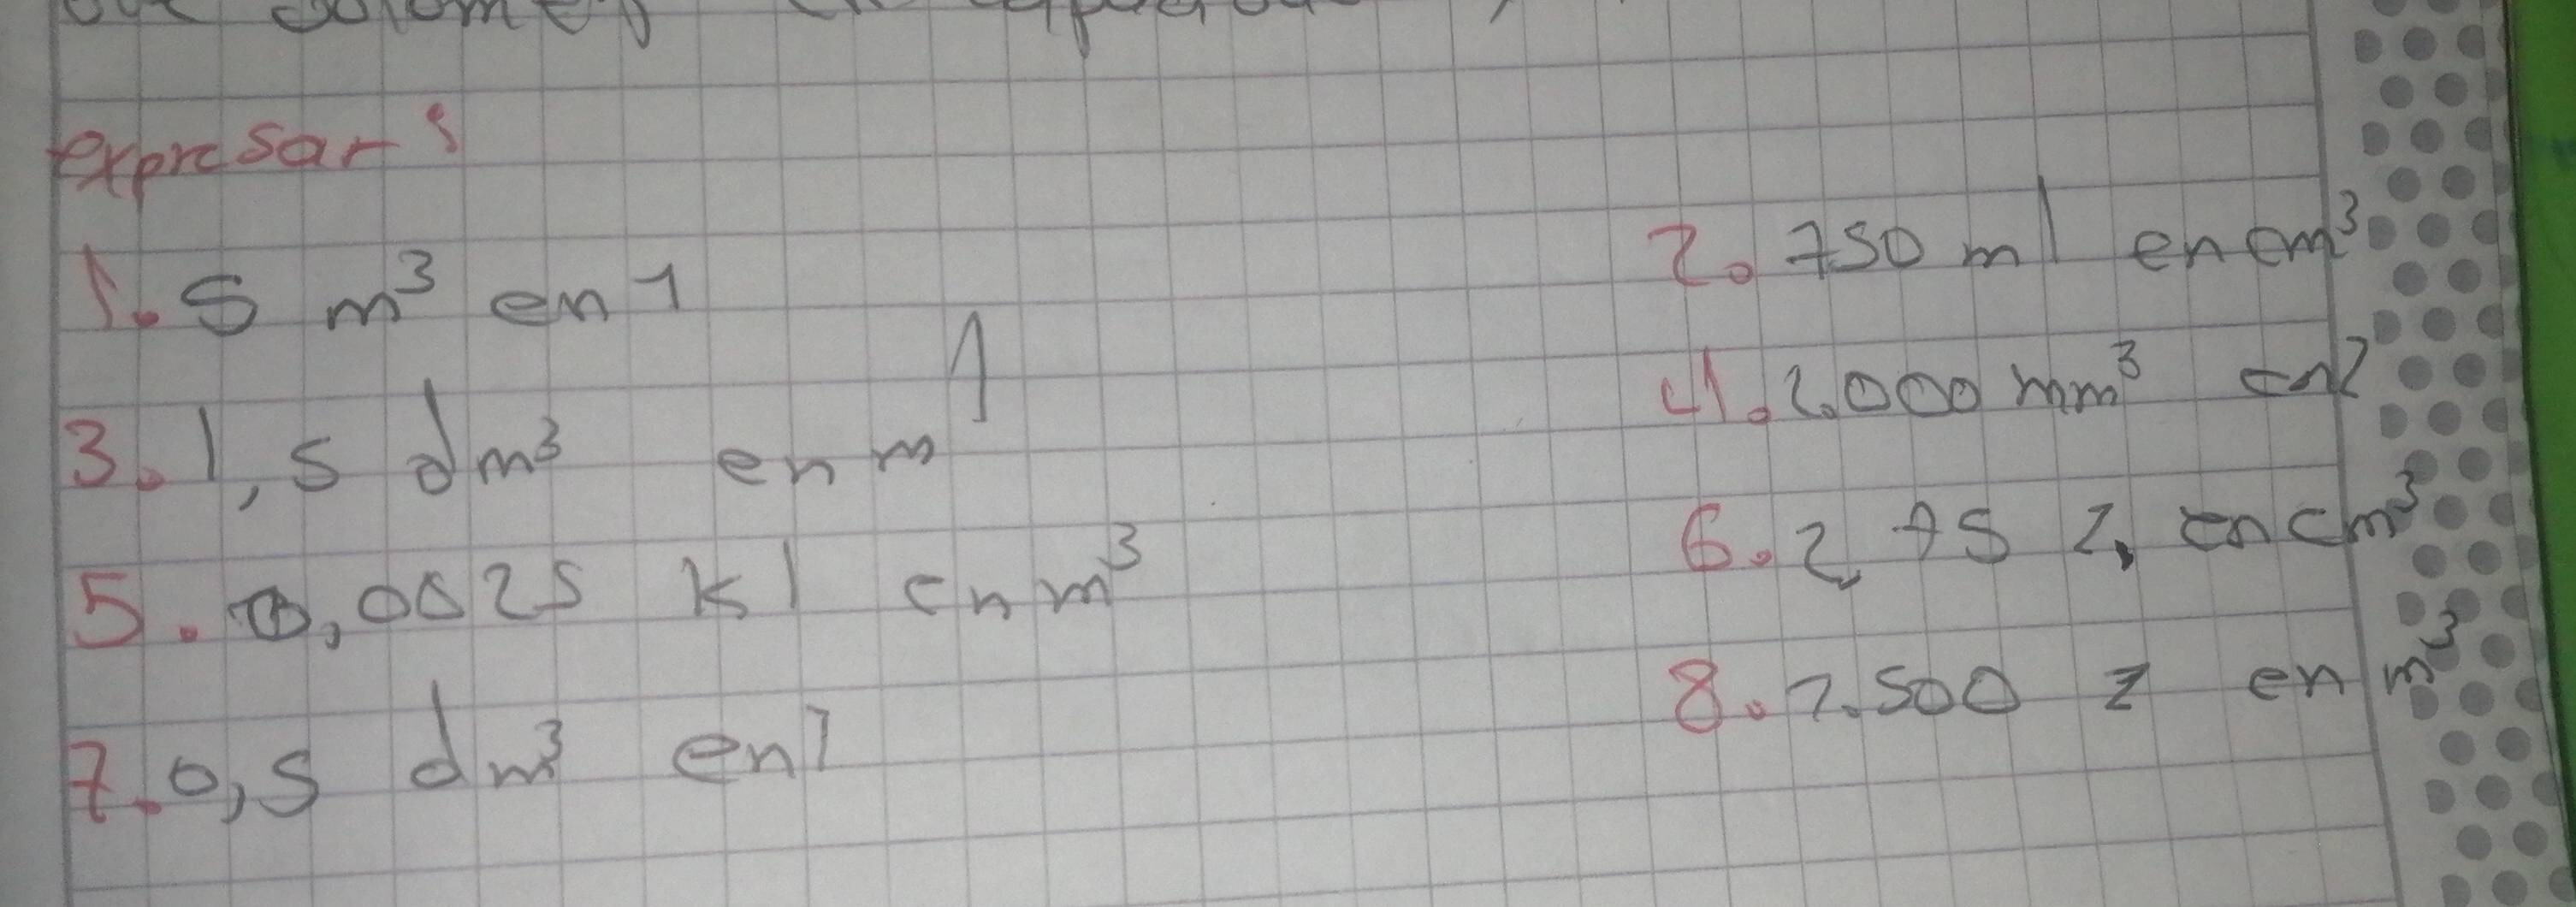 expresar:
1. 5 m³ en 1
2. 750 ml en cm³
3. 1,5 dm³ en ml
4. 2.000 mm³ en l
5. 0,0025 kl en m³
6. 2,75 l, en cm³
7. 0,5 dm³ en l
8. 2.500 l en m³